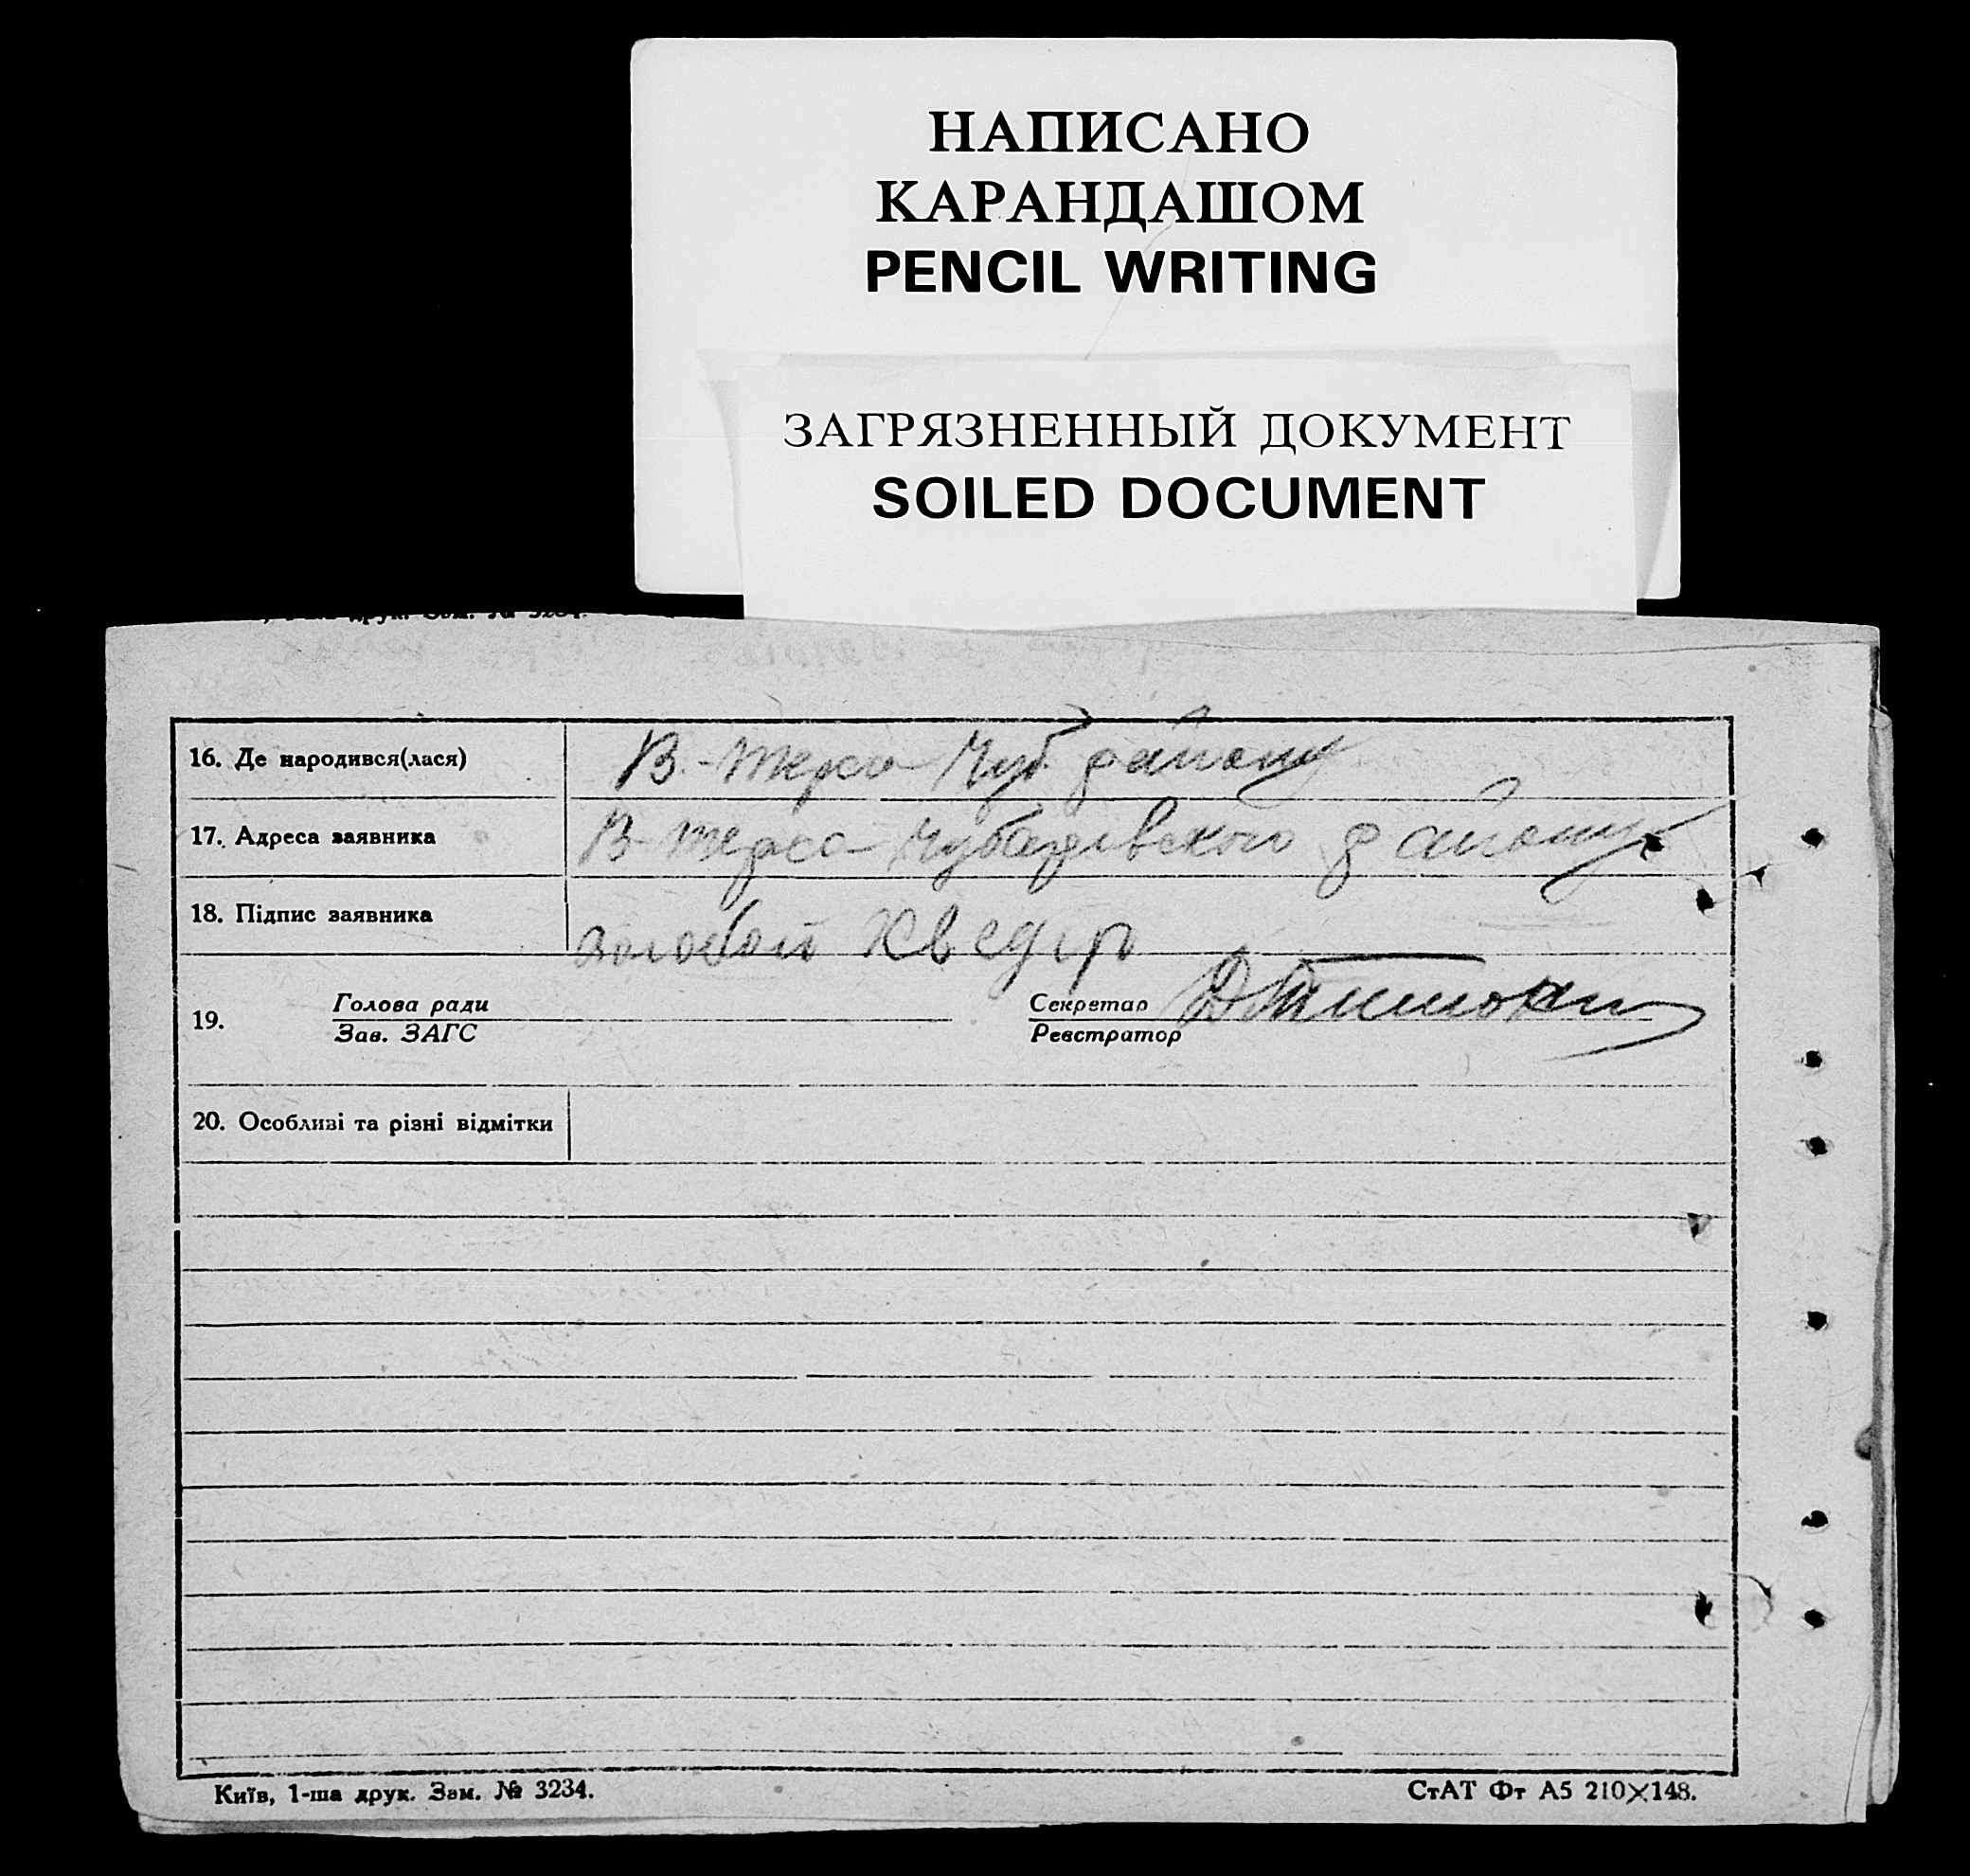 НАПИСАНО
КАРАНДАШОМ
PENCIL WRITING
ЗАГРЯЗНЕННЫЙ ДОКУМЕНТ
SOILED DOCUMENT
16. Де народився(лася) В.-Терса Чуб. району
17. Адреса заявника В-Терса Чубарівського району
18. Підпис заявника
19. Голова ради Секретар
Зав. ЗАГС Реєстратор
20. Особливі та різні відмітки
Київ, 1-ша друк. Зам. № 3234. СтАТ Фт А5 210×148.